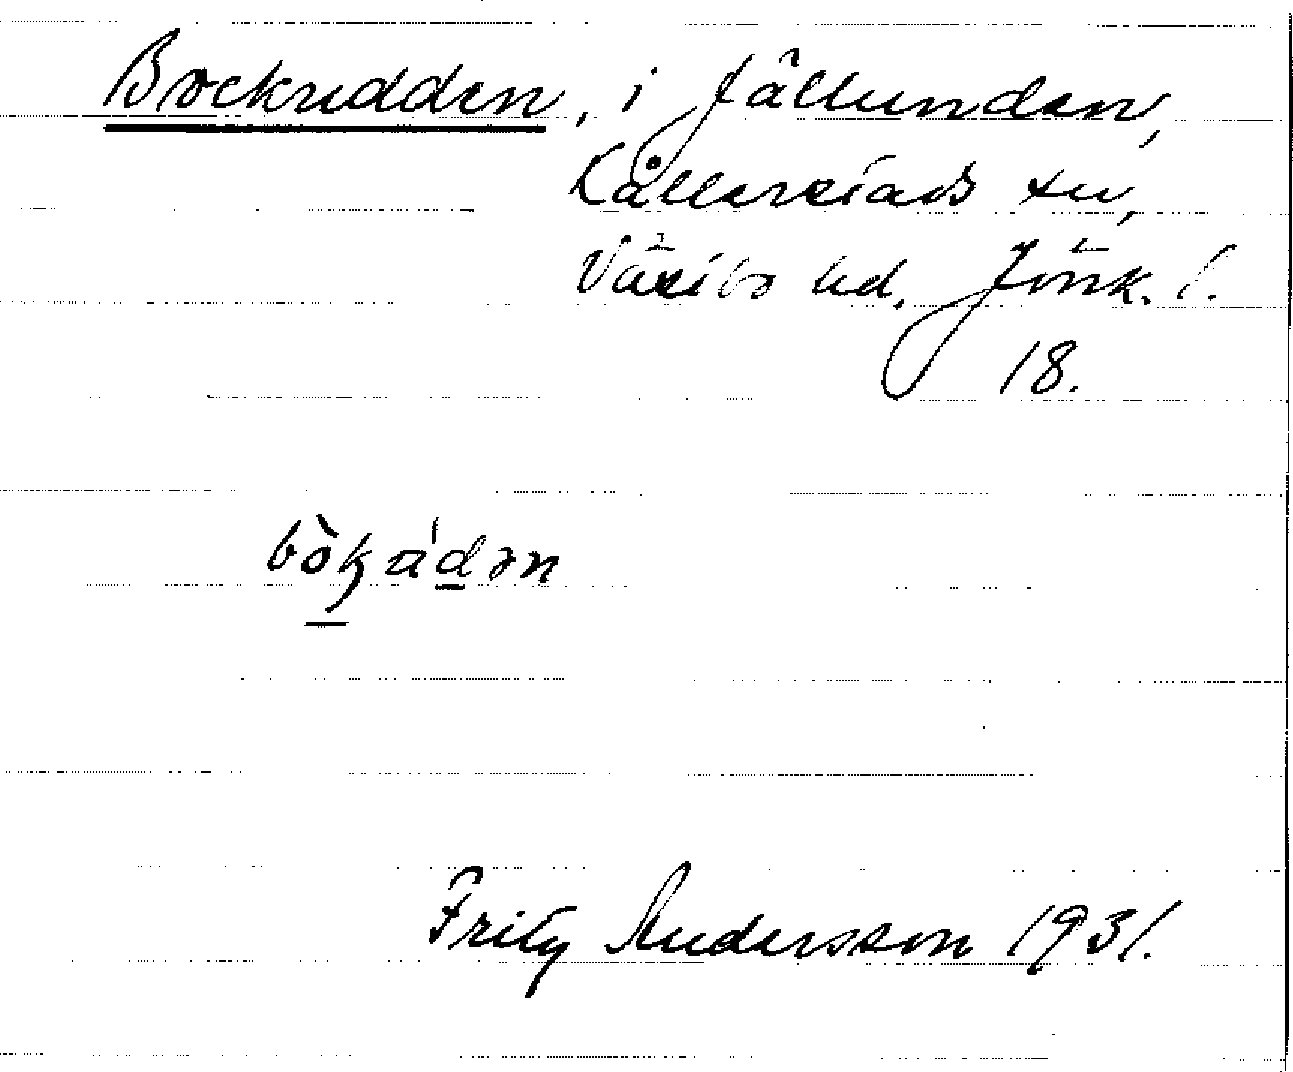 Bockudden, i Fällunden,
Kållerstads sn,
Västbo hd, Jönk. l.
18.
bòkadən
Fritz Andersson 1931.